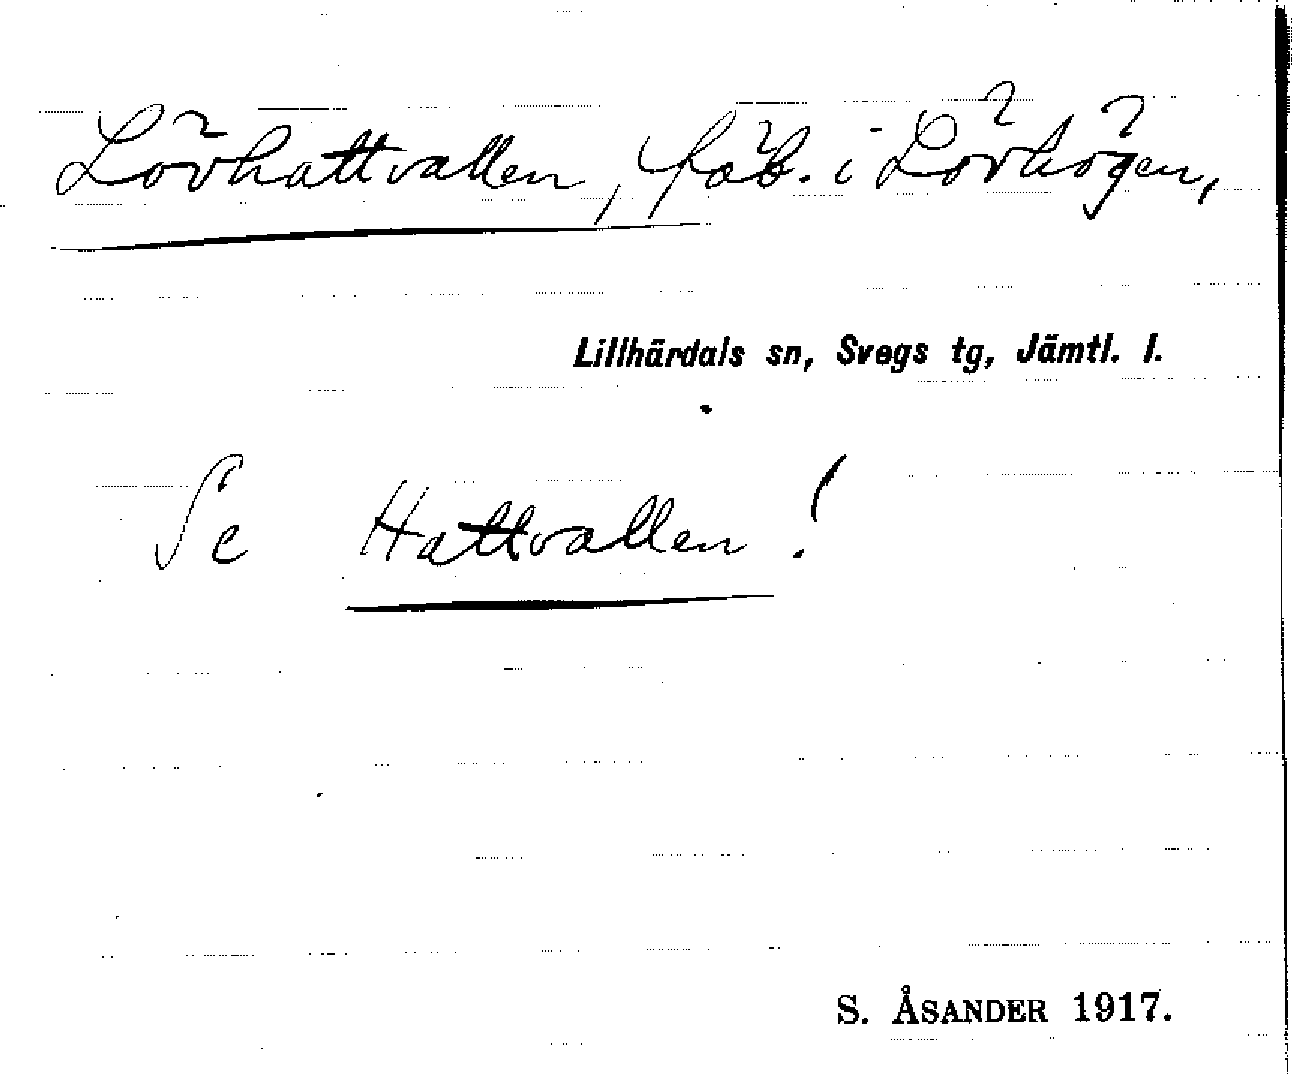 Lövhattvallen, fäb. i Lövhögen,
Lillhärdals sn, Svegs tg, Jämtl. l.
Se Hattvallen!
S. ÅSANDER 1917.